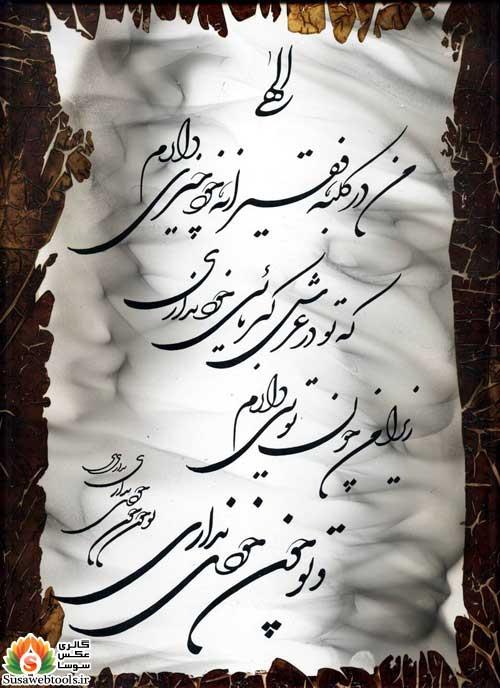 الهی
من در کلبه فقیرانه خود چیزی دارم
که تو در عرش کبریائی خود نداری
زیرا من چون تویی دارم
و تو چون خودی نداری
تو چون
خودی
نداری
نداری
گالری
عکس
سوسا
Susawebtools.ir